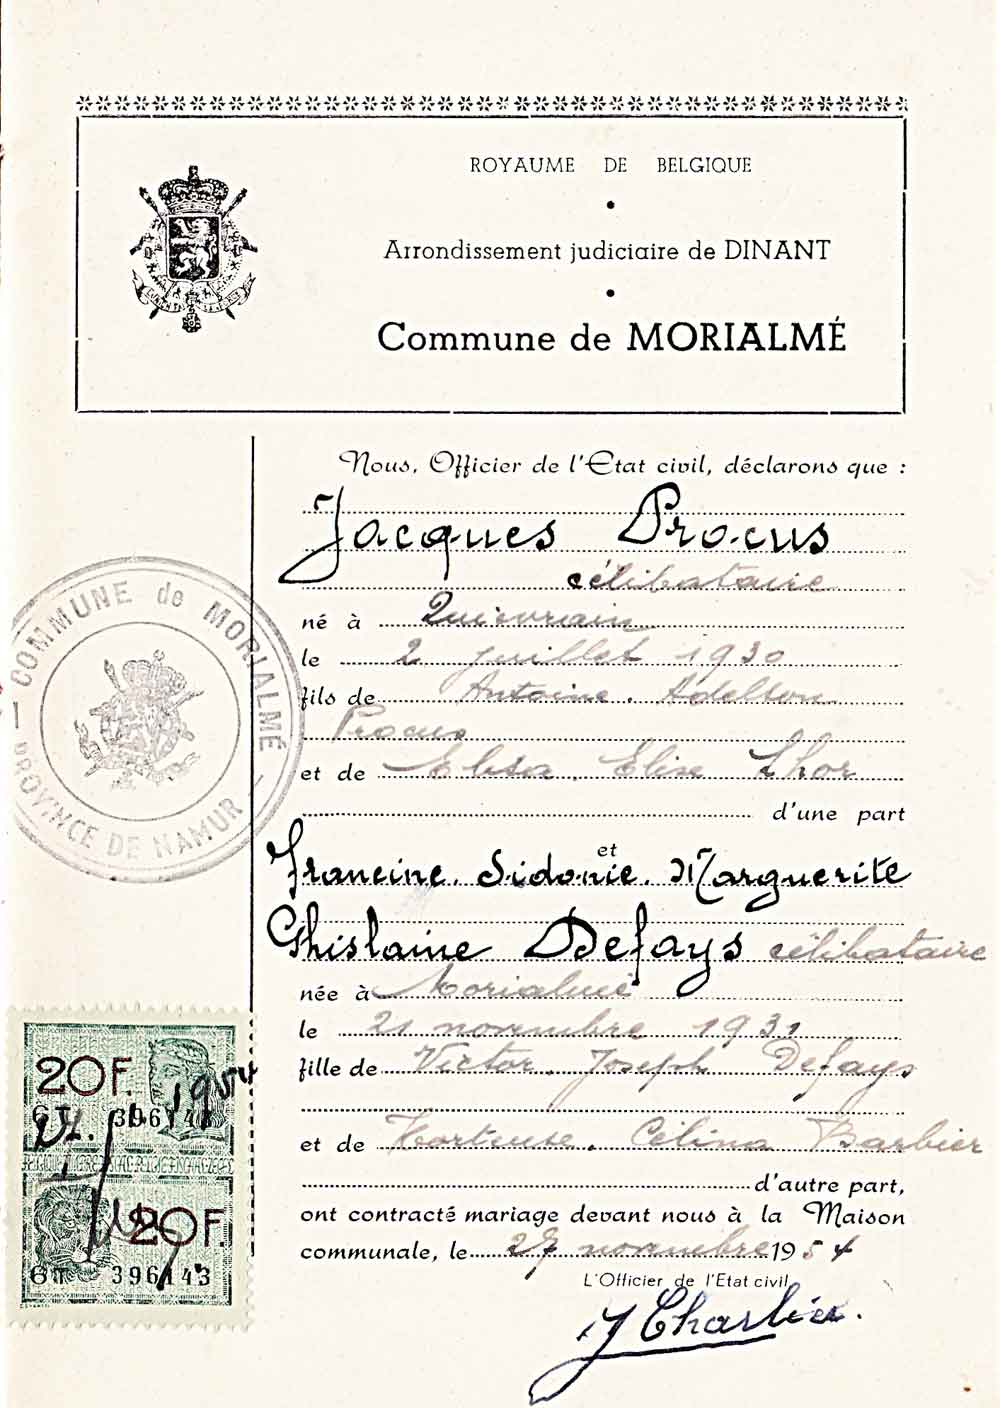 ROYAUME DE BELGIQUE
Arrondissement judiciaire de DINANT
Commune de MORIALMÉ
Nous, Officier de l'Etat civil, déclarons que :
Jacques Procus
célibataire
né à Quievrain
le 2 juillet 1930
fils de Antoine. Adelson
Procus
et de Elisa. Elise Lhor
d'une part
et
Francine. Sidonie. Marguerite
Ghislaine Defays célibataire
née à Morialmé
le 21 novembre 1931
fille de Victor. Joseph Defays
et de Hortense. Célina Barbier
d'autre part,
ont contracté mariage devant nous à la Maison
communale, le 27 novembre 1954
L'Officier de l'Etat civil,
J Charlier.
COMMUNE de MORIALMÉ
PROVINCE DE NAMUR
20F.
6T 396143
1954
27.
20F.
6T 396143